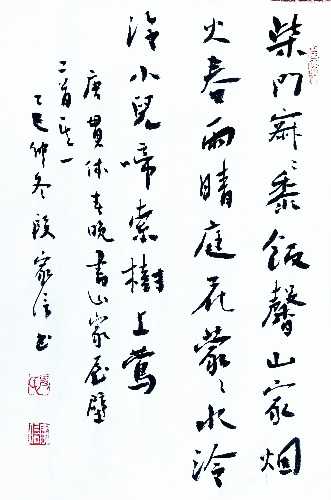 柴门寂〻黍飯馨山家烟
火春雨晴庭花蒙〻水泠
泠小兒啼索樹上鶯
唐貫休春晚書山家屋壁
二首其一
乙巳仲冬段家信书